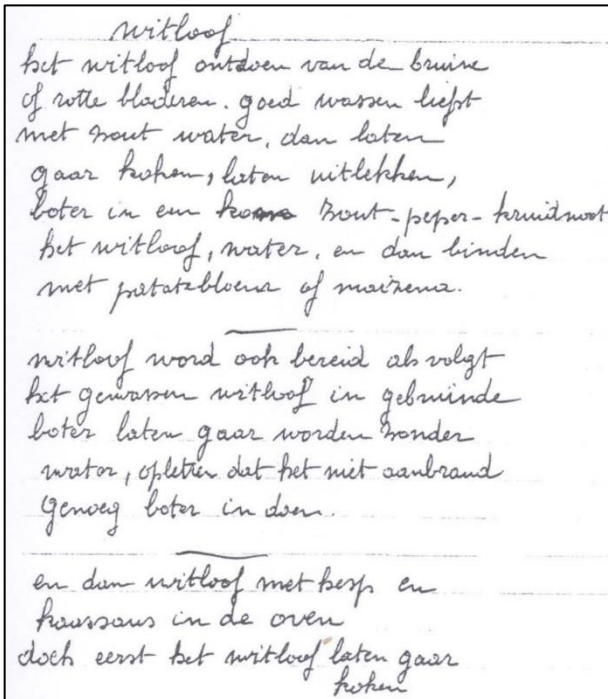 witloof
het witloof ontdoen van de bruine
of rotte bladeren. goed wassen liefst
met zout water, dan laten
gaar koken, laten uitlekken,
boter in een zout-peper-kruidnoot
het witloof, water, en dan binden
met patatebloem of maizena.
witloof word ook bereid als volgt
het gewassen witloof in gebruinde
boter laten gaar worden zonder
water, opletten dat het niet aanbrand
genoeg boter in doen.
en dan witloof met hesp en
kaassaus in de oven
doch eerst het witloof laten gaar
koken